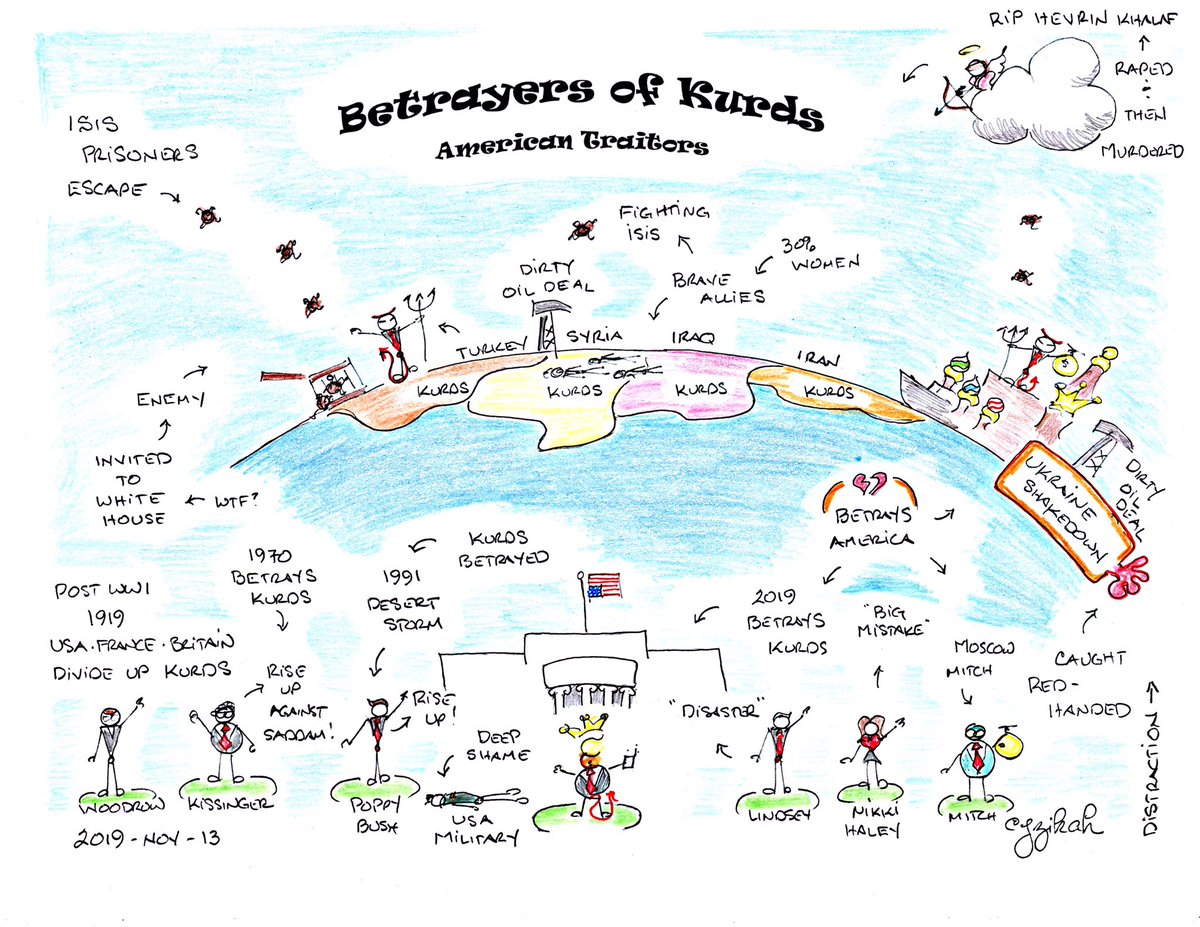 RIP HEVRIN KHALAF
RAPED
THEN
MURDERED
Betrayers of Kurds
American Traitors
ISIS
PRISONERS
ESCAPE
FIGHTING
ISIS
30%
WOMEN
BRAVE
ALLIES
DIRTY
OIL DEAL
TURKEY
SYRIA
IRAQ
IRAN
KURDS
KURDS
KURDS
KURDS
ENEMY
INVITED
TO
WHITE
HOUSE
WTF?
UKRAINE
SHAKEDOWN
DIRTY
OIL
DEAL
BETRAYS
AMERICA
KURDS
BETRAYED
1970
BETRAYS
KURDS
1991
DESERT
STORM
POST WWI
1919
USA·FRANCE·BRITAIN
DIVIDE UP KURDS
RISE
UP
AGAINST
SADDAM!
RISE
UP!
DEEP
SHAME
2019
BETRAYS
KURDS
"BIG
MISTAKE"
"DISASTER"
MOSCOW
MITCH
CAUGHT
RED-
HANDED
DISTRACTION
WOODROW
KISSINGER
POPPY
BUSH
USA
MILITARY
LINDSEY
NIKKI
HALEY
MITCH
cyzikah
2019-NOV-13